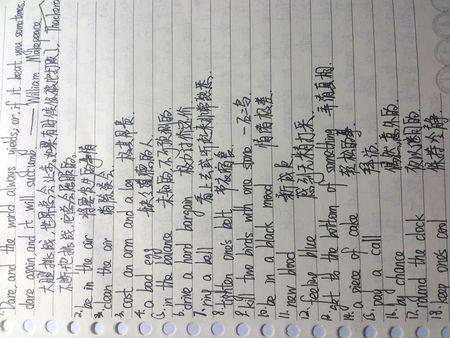 Dare, and the world always yields; or, if it beat you sometimes,
dare again, and it will succumb. —— William Makepeace Thackeray
大胆挑战，世界总会让步；如果有时候你被它打败了，
不断地挑战，它总会屈服的。
2. be in the air 将要发生的事情
3. clean the air 消除误会
cost an arm and a leg 极其昂贵
4. a bad egg 缺乏道德的人
5. in the balance 未知的，不可预测的
6. drive a hard bargain 极力讨价还价
7. ring a bell 看上去或听起来非常熟悉
8. tighten one's belt 节衣缩食
9. kill two birds with one stone 一石二鸟
10. be in a black mood 情绪极差
11. new blood 新成员
12. feeling blue 感到无精打采
get to the bottom of something 弄清真相
14. a piece of cake
15. pay a call 拜访
16. by chance 偶然，意外的
17. round the clock 夜以继日的
18. keep one's 保持冷静